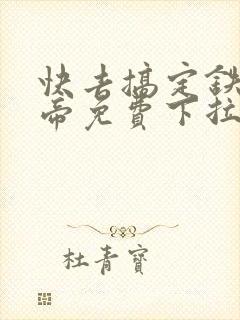 快去搞定鉄
帝免費下拉
杜青寶